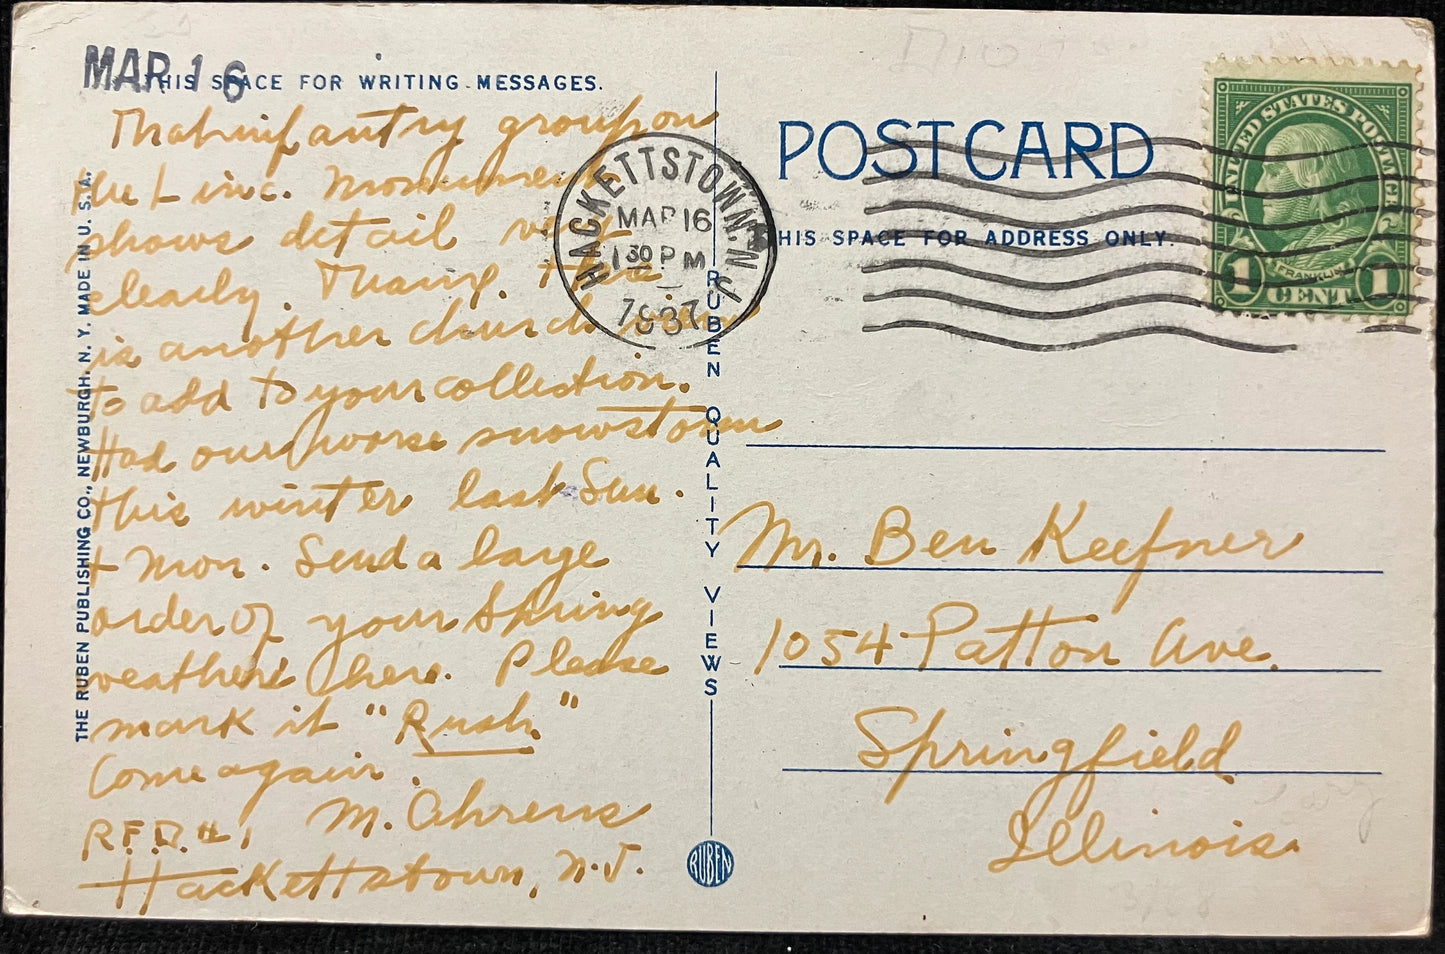 MAR 16
THIS SPACE FOR WRITING MESSAGES.
That infantry group on
the Linc. Monument
shows detail very
clearly. Thanx. Here
is another church view
to add to your collection.
Had our worse snowstorm
this winter last Sun.
+ Mon. Send a large
order of your Spring
weather here. Please
mark it "Rush."
Come again.
M. Ahrens
R.F.D. #1
Hackettstown, N.J.
THE RUBEN PUBLISHING CO., NEWBURGH, N. Y. MADE IN U. S. A.
HACKETTSTOWN, N.J.
MAR 16
1 30 PM
1937
RUBEN QUALITY VIEWS
RUBEN
POST CARD
THIS SPACE FOR ADDRESS ONLY.
UNITED STATES POSTAGE
FRANKLIN
1 CENT 1
Mr. Ben Keefner
1054 Patton Ave.
Springfield
Illinois.